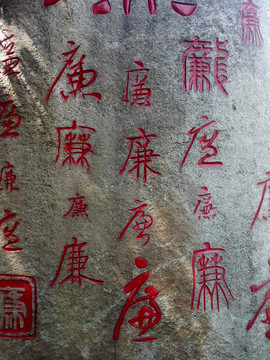 廉廉廉廉
廉廉廉廉
廉廉廉廉
廉廉廉廉廉